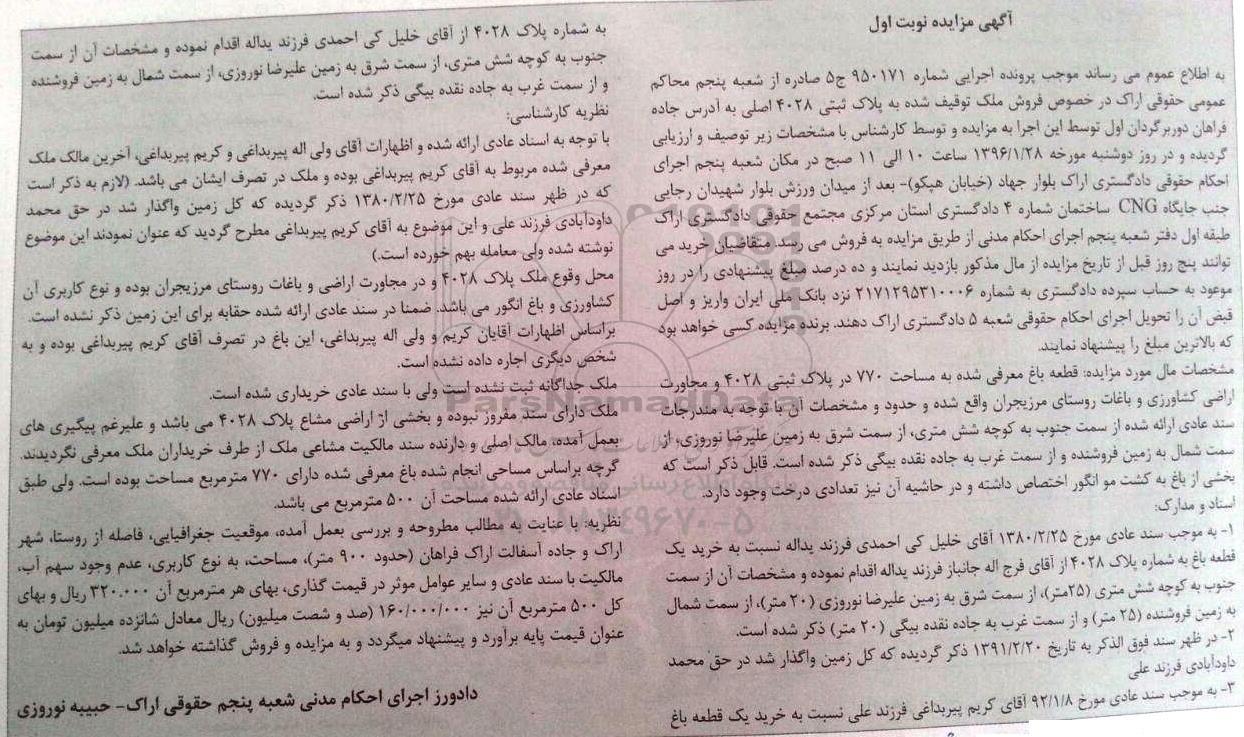 آگهی مزایده نوبت اول
به اطلاع عموم می رساند موجب پرونده اجرایی شماره ۹۵۰۱۷۱ ج۵ صادره از شعبه پنجم محاکم
عمومی حقوقی اراک در خصوص فروش ملک توقیف شده به پلاک ثبتی ۴۰۲۸ اصلی به آدرس جاده
فراهان دوربرگردان اول توسط این اجرا به مزایده و توسط کارشناس با مشخصات زیر توصیف و ارزیابی
گردیده و در روز دوشنبه مورخه ۱۳۹۶/۱/۲۸ ساعت ۱۰ الی ۱۱ صبح در مکان شعبه پنجم اجرای
احکام حقوقی دادگستری اراک بلوار جهاد (خیابان هپکو)- بعد از میدان ورزش بلوار شهیدان رجایی
جنب جایگاه CNG ساختمان شماره ۴ دادگستری استان مرکزی مجتمع حقوقی دادگستری اراک
طبقه اول دفتر شعبه پنجم اجرای احکام مدنی از طریق مزایده به فروش می رسد. متقاضیان خرید می
توانند پنج روز قبل از تاریخ مزایده از مال مذکور بازدید نمایند و ده درصد مبلغ پیشنهادی را در روز
موعود به حساب سپرده دادگستری به شماره ۲۱۷۱۲۹۵۳۱۰۰۰۶ نزد بانک ملی ایران واریز و اصل
قبض آن را تحویل اجرای احکام حقوقی شعبه ۵ دادگستری اراک دهند. برنده مزایده کسی خواهد بود
که بالاترین مبلغ را پیشنهاد نمایند.
مشخصات مال مورد مزایده: قطعه باغ معرفی شده به مساحت ۷۷۰ در پلاک ثبتی ۴۰۲۸ و مجاورت
اراضی کشاورزی و باغات روستای مرزیجران واقع شده و حدود و مشخصات آن با توجه به مندرجات
سند عادی ارائه شده از سمت جنوب به کوچه شش متری، از سمت شرق به زمین علیرضا نوروزی، از
سمت شمال به زمین فروشنده و از سمت غرب به جاده نقده بیگی ذکر شده است. قابل ذکر است که
بخشی از باغ به کشت مو انگور اختصاص داشته و در حاشیه آن نیز تعدادی درخت وجود دارد.
اسناد و مدارک:
۱- به موجب سند عادی مورخ ۱۳۸۰/۲/۲۵ آقای خلیل کی احمدی فرزند یداله نسبت به خرید یک
قطعه باغ به شماره پلاک ۴۰۲۸ از آقای فرج اله جانباز فرزند یداله اقدام نموده و مشخصات آن از سمت
جنوب به کوچه شش متری (۲۵متر)، از سمت شرق به زمین علیرضا نوروزی (۲۰ متر)، از سمت شمال
به زمین فروشنده (۲۵ متر) و از سمت غرب به جاده نقده بیگی (۲۰ متر) ذکر شده است.
۲- در ظهر سند فوق الذکر به تاریخ ۱۳۹۱/۲/۲۰ ذکر گردیده که کل زمین واگذار شد در حق محمد
داودآبادی فرزند علی
۳- به موجب سند عادی مورخ ۹۲/۱/۸ آقای کریم پیربداغی فرزند علی نسبت به خرید یک قطعه باغ
به شماره پلاک ۴۰۲۸ از آقای خلیل کی احمدی فرزند یداله اقدام نموده و مشخصات آن از سمت
جنوب به کوچه شش متری، از سمت شرق به زمین علیرضا نوروزی، از سمت شمال به زمین فروشنده
و از سمت غرب به جاده نقده بیگی ذکر شده است.
نظریه کارشناسی:
با توجه به اسناد عادی ارائه شده و اظهارات آقای ولی اله پیربداغی و کریم پیربداغی، آخرین مالک ملک
معرفی شده مربوط به آقای کریم پیربداغی بوده و ملک در تصرف ایشان می باشد. (لازم به ذکر است
که در ظهر سند عادی مورخ ۱۳۸۰/۲/۲۵ ذکر گردیده که کل زمین واگذار شد در حق محمد
داودآبادی فرزند علی و این موضوع به آقای کریم پیربداغی مطرح گردید که عنوان نمودند این موضوع
نوشته شده ولی معامله بهم خورده است.)
محل وقوع ملک پلاک ۴۰۲۸ و در مجاورت اراضی و باغات روستای مرزیجران بوده و نوع کاربری آن
کشاورزی و باغ انگور می باشد. ضمنا در سند عادی ارائه شده حقابه برای این زمین ذکر نشده است.
براساس اظهارات آقایان کریم و ولی اله پیربداغی، این باغ در تصرف آقای کریم پیربداغی بوده و به
شخص دیگری اجاره داده نشده است.
ملک جداگانه ثبت نشده است ولی با سند عادی خریداری شده است.
ملک دارای سند مفروز نبوده و بخشی از اراضی مشاع پلاک ۴۰۲۸ می باشد و علیرغم پیگیری های
بعمل آمده، مالک اصلی و دارنده سند مالکیت مشاعی ملک از طرف خریداران ملک معرفی نگردیدند.
گرچه براساس مساحی انجام شده باغ معرفی شده دارای ۷۷۰ مترمربع مساحت بوده است. ولی طبق
اسناد عادی ارائه شده مساحت آن ۵۰۰ مترمربع می باشد.
نظریه: با عنایت به مطالب مطروحه و بررسی بعمل آمده، موقعیت جغرافیایی، فاصله از روستا، شهر
اراک و جاده آسفالت اراک فراهان (حدود ۹۰۰ متر)، مساحت، به نوع کاربری، عدم وجود سهم آب،
مالکیت با سند عادی و سایر عوامل موثر در قیمت گذاری، بهای هر مترمربع آن ۳۲۰.۰۰۰ ریال و بهای
کل ۵۰۰ مترمربع آن نیز ۱۶۰/۰۰۰/۰۰۰ (صد و شصت میلیون) ریال معادل شانزده میلیون تومان به
عنوان قیمت پایه برآورد و پیشنهاد میگردد و به مزایده و فروش گذاشته خواهد شد.
دادورز اجرای احکام مدنی شعبه پنجم حقوقی اراک- حبیبه نوروزی
ParsNamadData